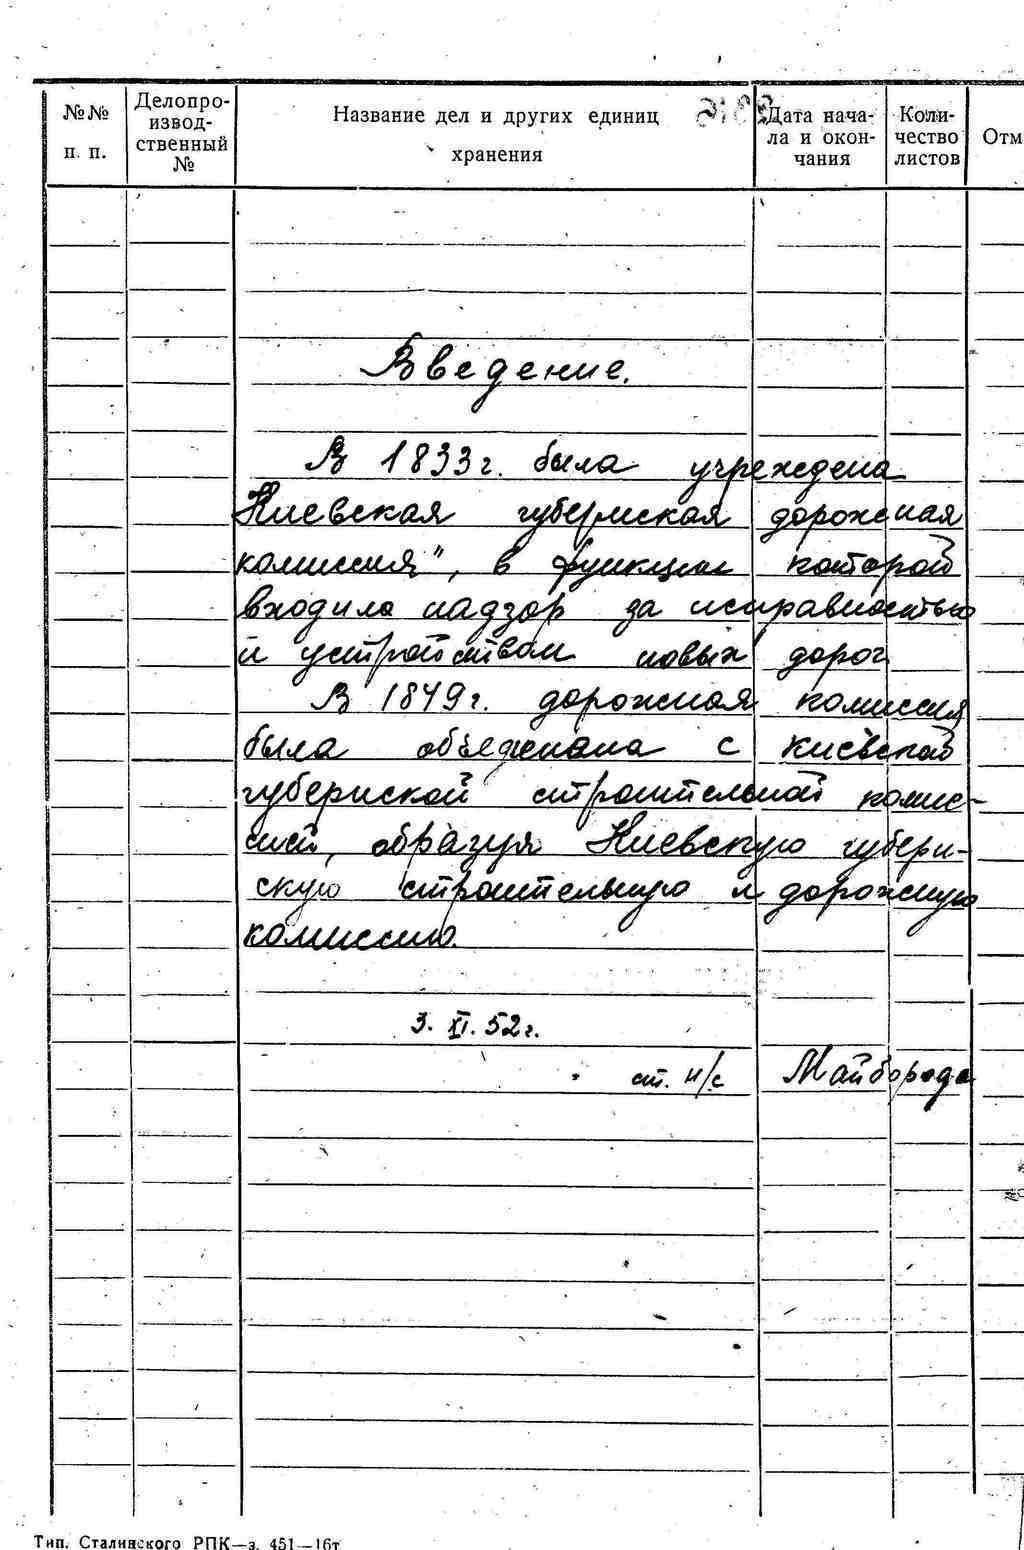 №№ п. п.
Делопроизводственный №
Название дел и других единиц хранения
Дата начала и окончания
Количество листов
Отм
Введение.
В 1833 г. была учреждена
Киевская губернская дорожная
комиссия", в функции которой
входило надзор за исправностью
и устройством новых дорог
В 1849 г. дорожная комиссия
была объединена с Киевской
губернской строительной комис-
сией, образуя Киевскую губерн-
скую строительную и дорожную
комиссию.
3. XI. 52 г.
ст. н/с Майборода
Тип. Сталинского РПК—з. 451—16т